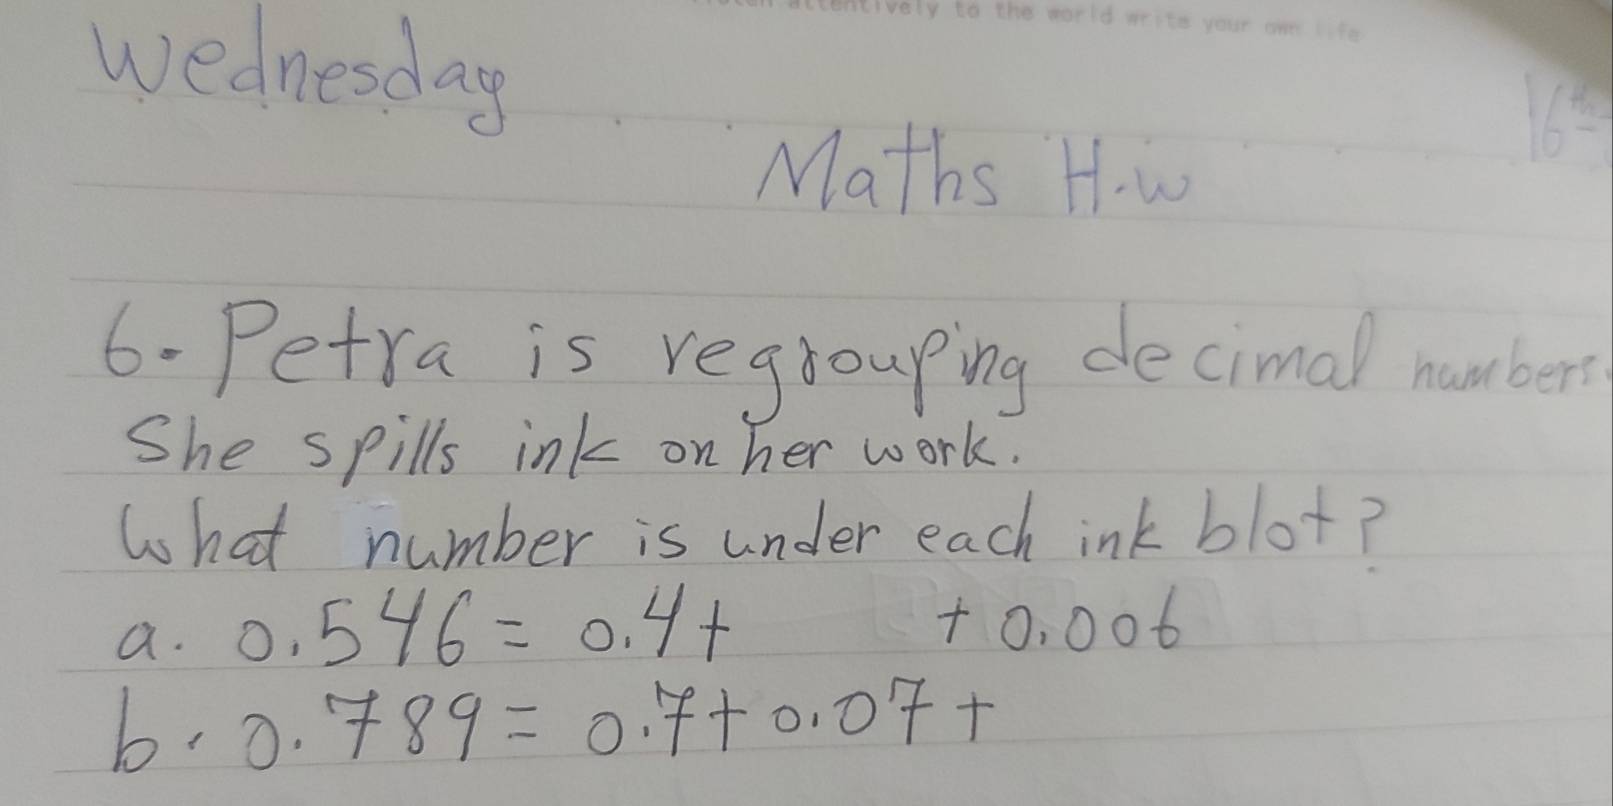 attentively to the world write your own life
Wednesday
16th
Maths H.w
6. Petra is regrouping decimal numbers.
She spills ink on her work.
What number is under each ink blot?
a. 0.546 = 0.4 + + 0.006
b. 0.789 = 0.7 + 0.07 +